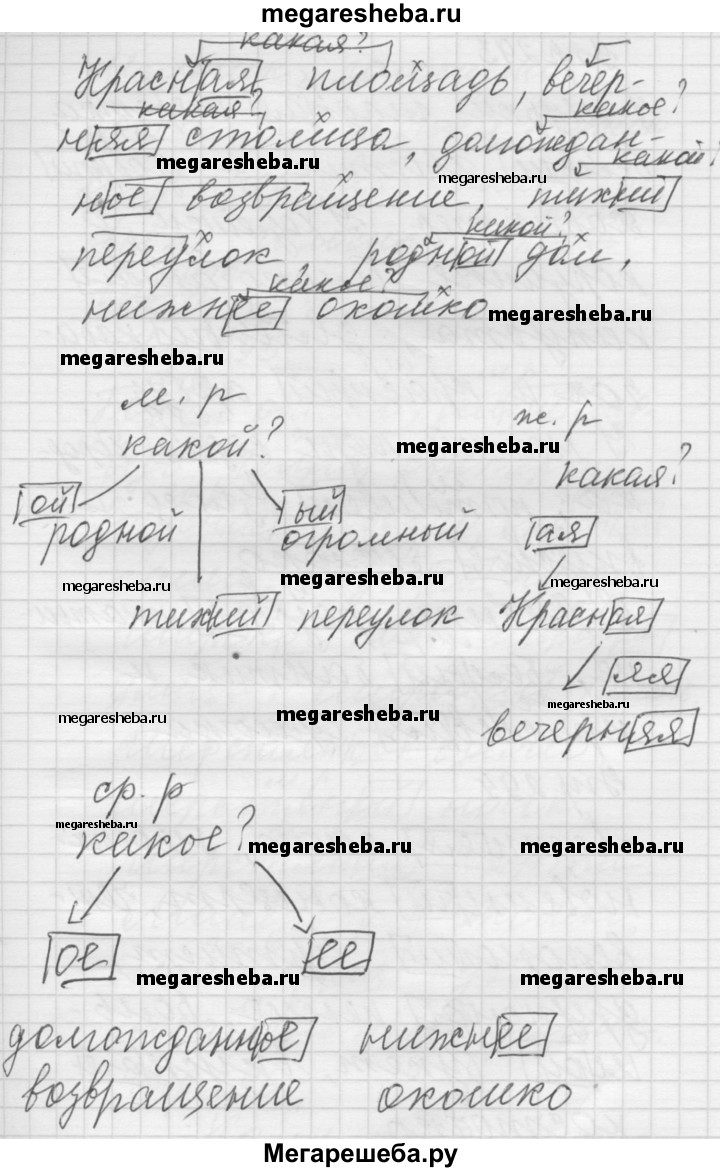 megaresheba.ru
какая?
Красная площадь, вечер-
какая? какое?
няя столица, долгождан-
megaresheba.ru какой?
megaresheba.ru
ное возвращение, тихий
какой?
переулок, родной дом,
какое?
нижнее окошко megaresheba.ru
megaresheba.ru
м. р
ж. р
какой? megaresheba.ru
какая?
ой ый
родной огромный ая
megaresheba.ru megaresheba.ru megaresheba.ru
тихий переулок Красная
яя
megaresheba.ru megaresheba.ru megaresheba.ru
вечерняя
ср. р
megaresheba.ru
какое? megaresheba.ru megaresheba.ru
ое ее
megaresheba.ru megaresheba.ru
долгожданное нижнее
возвращение окошко
Мегарешеба.ру